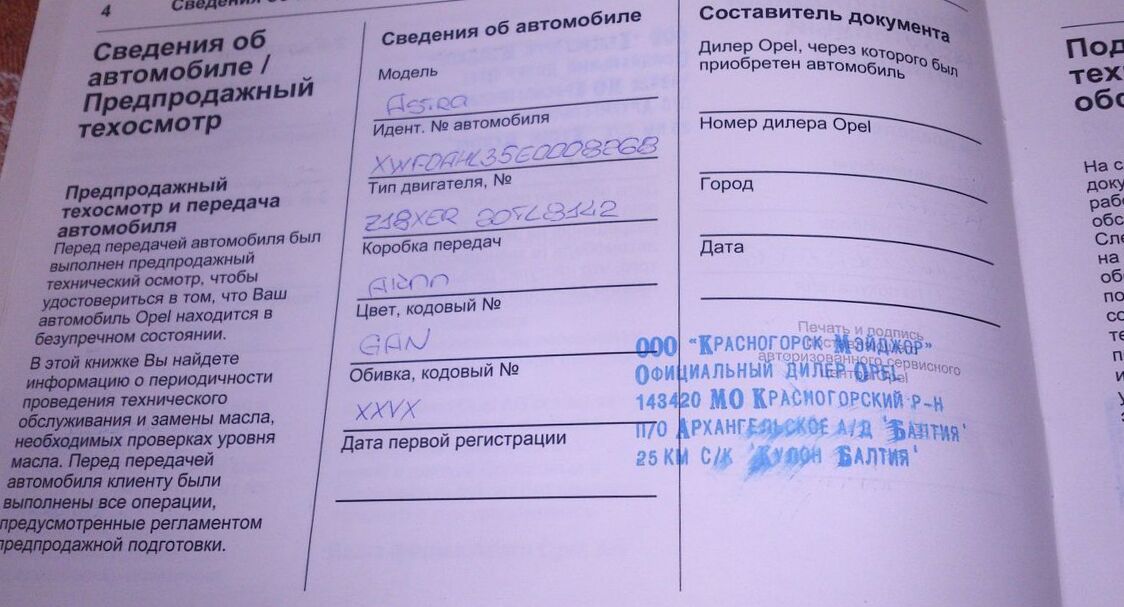 4
Сведения об
автомобиле /
Предпродажный
техосмотр
Предпродажный
техосмотр и передача
автомобиля
Перед передачей автомобиля был
выполнен предпродажный
технический осмотр, чтобы
удостовериться в том, что Ваш
автомобиль Opel находится в
безупречном состоянии.
В этой книжке Вы найдете
информацию о периодичности
проведения технического
обслуживания и замены масла,
необходимых проверках уровня
масла. Перед передачей
автомобиля клиенту были
выполнены все операции,
предусмотренные регламентом
предпродажной подготовки.
Сведения об автомобиле
Модель
Astra
Идент. № автомобиля
XWF0AHL35E0008268
Тип двигателя, №
Z18XER 20TL8142
Коробка передач
Цвет, кодовый №
GAN
Обивка, кодовый №
XXVX
Дата первой регистрации
Составитель документа
Дилер Opel, через которого был
приобретен автомобиль
Номер дилера Opel
Город
Дата
Печать и подпись
авторизованного сервисного
ООО "Красногорск Мэйджор"
Официальный дилер Opel
143420 МО Красногорский р-н
п/о Архангельское а/д 'Балтия'
25 км с/к 'Кулон Балтия'